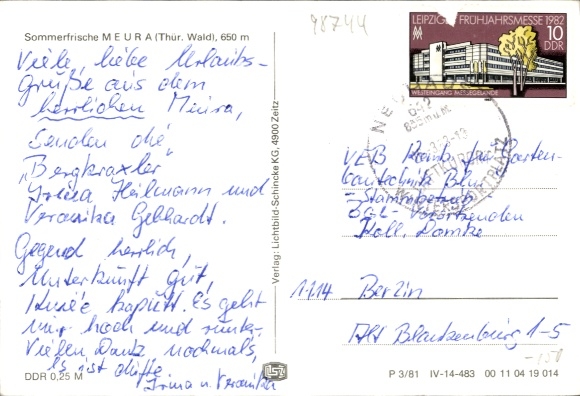 98744
Sommerfrische MEURA (Thür. Wald), 650 m
Viele, liebe Urlaubs-
grüße aus dem
herrlichen Meura,
senden die
„Bergkraxler"
Irina Heilmann und
Veronika Gebhardt.
Gegend herrlich,
Unterkunft gut,
Kniee kaputt. Es geht
nur hoch und runter.
Vielen Dank, nochmals,
es ist dufte
Irina u. Veronika
DDR 0,25 M
Verlag: Lichtbild-Schincke KG, 4900 Zeitz
LEIPZIGER FRÜHJAHRSMESSE 1982
10
DDR
WESTEINGANG MESSEGELÄNDE
VEB Komb. für Garten-
bautechnik Bln.
- Stammbetrieb -
BGL-Vorsitzenden
Koll. Domke
1114 Berlin
Alt Blankenburg 1-5
-150
P 3/81 IV-14-483 00 11 04 19 014